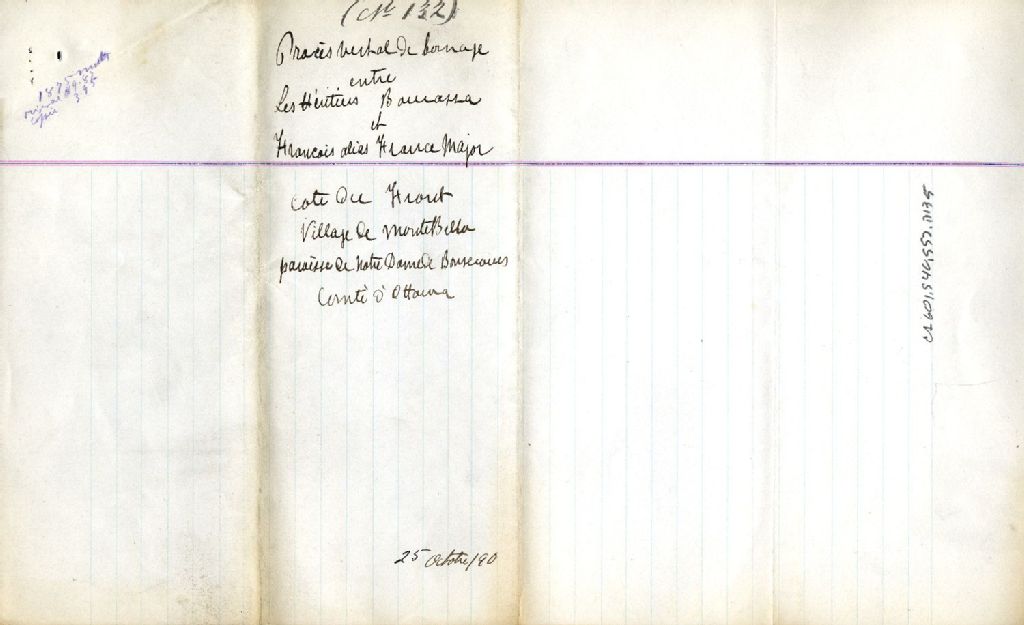 (No 132)
Procès verbal de bornage
entre
Les Héritiers Bourassa
et
Francois alias France Major
cote du Front
Village de MonteBello
paroisse de Notre Dame de Bonsecours
Comté d'Ottawa
25 Octobre/90
1875
CA601,S46,SS2,D135